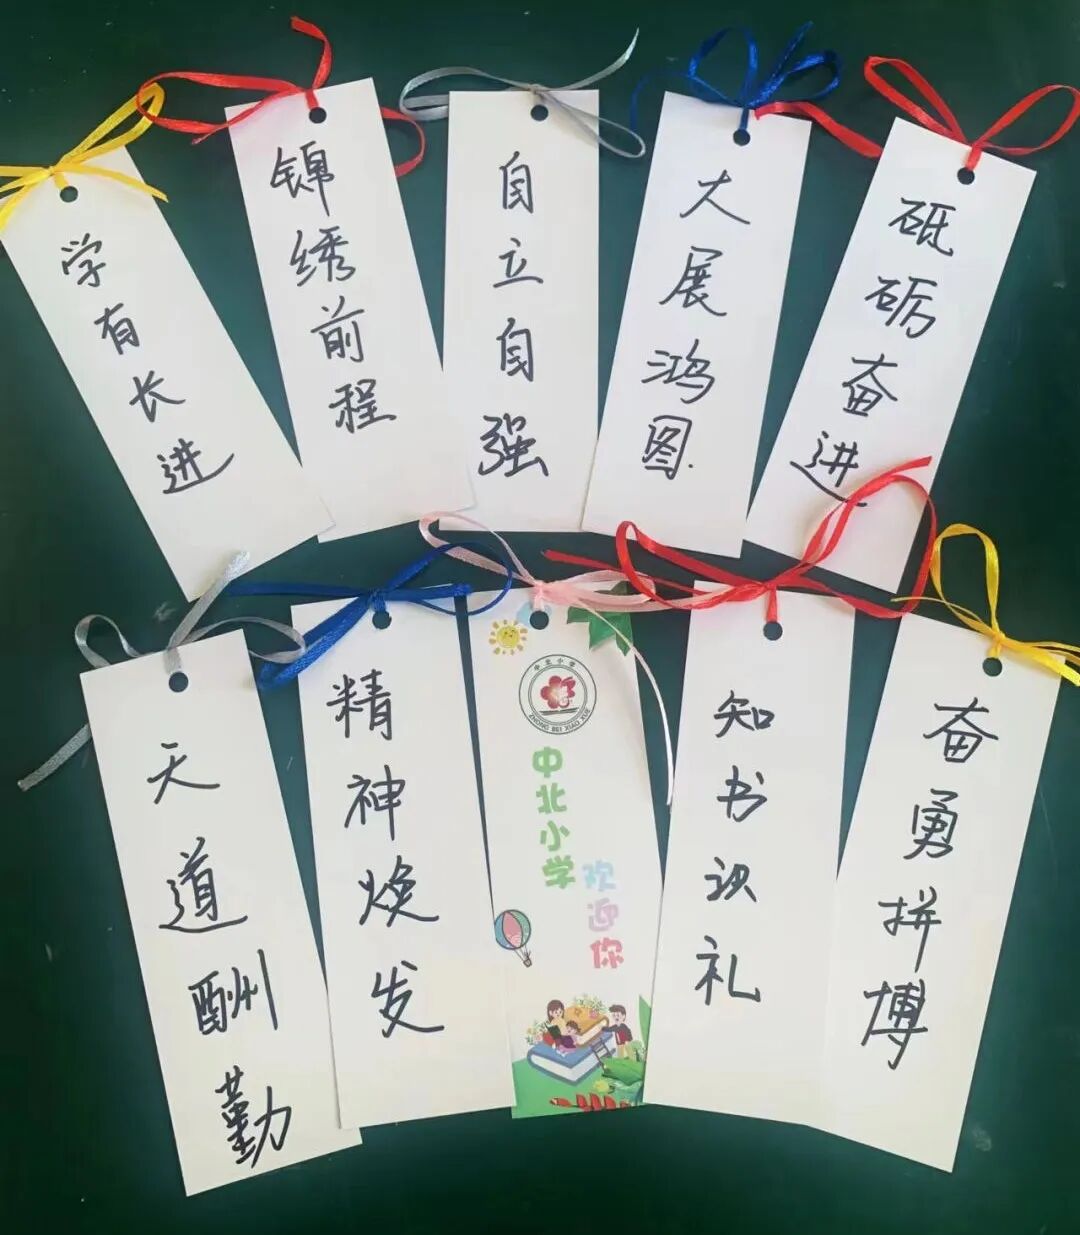 学有长进
锦绣前程
自立自强
大展鸿图
砥砺奋进
天道酬勤
精神焕发
中北小学
ZHONG BEI XIAO XUE
中北小学
欢迎你
知书识礼
奋勇拼博